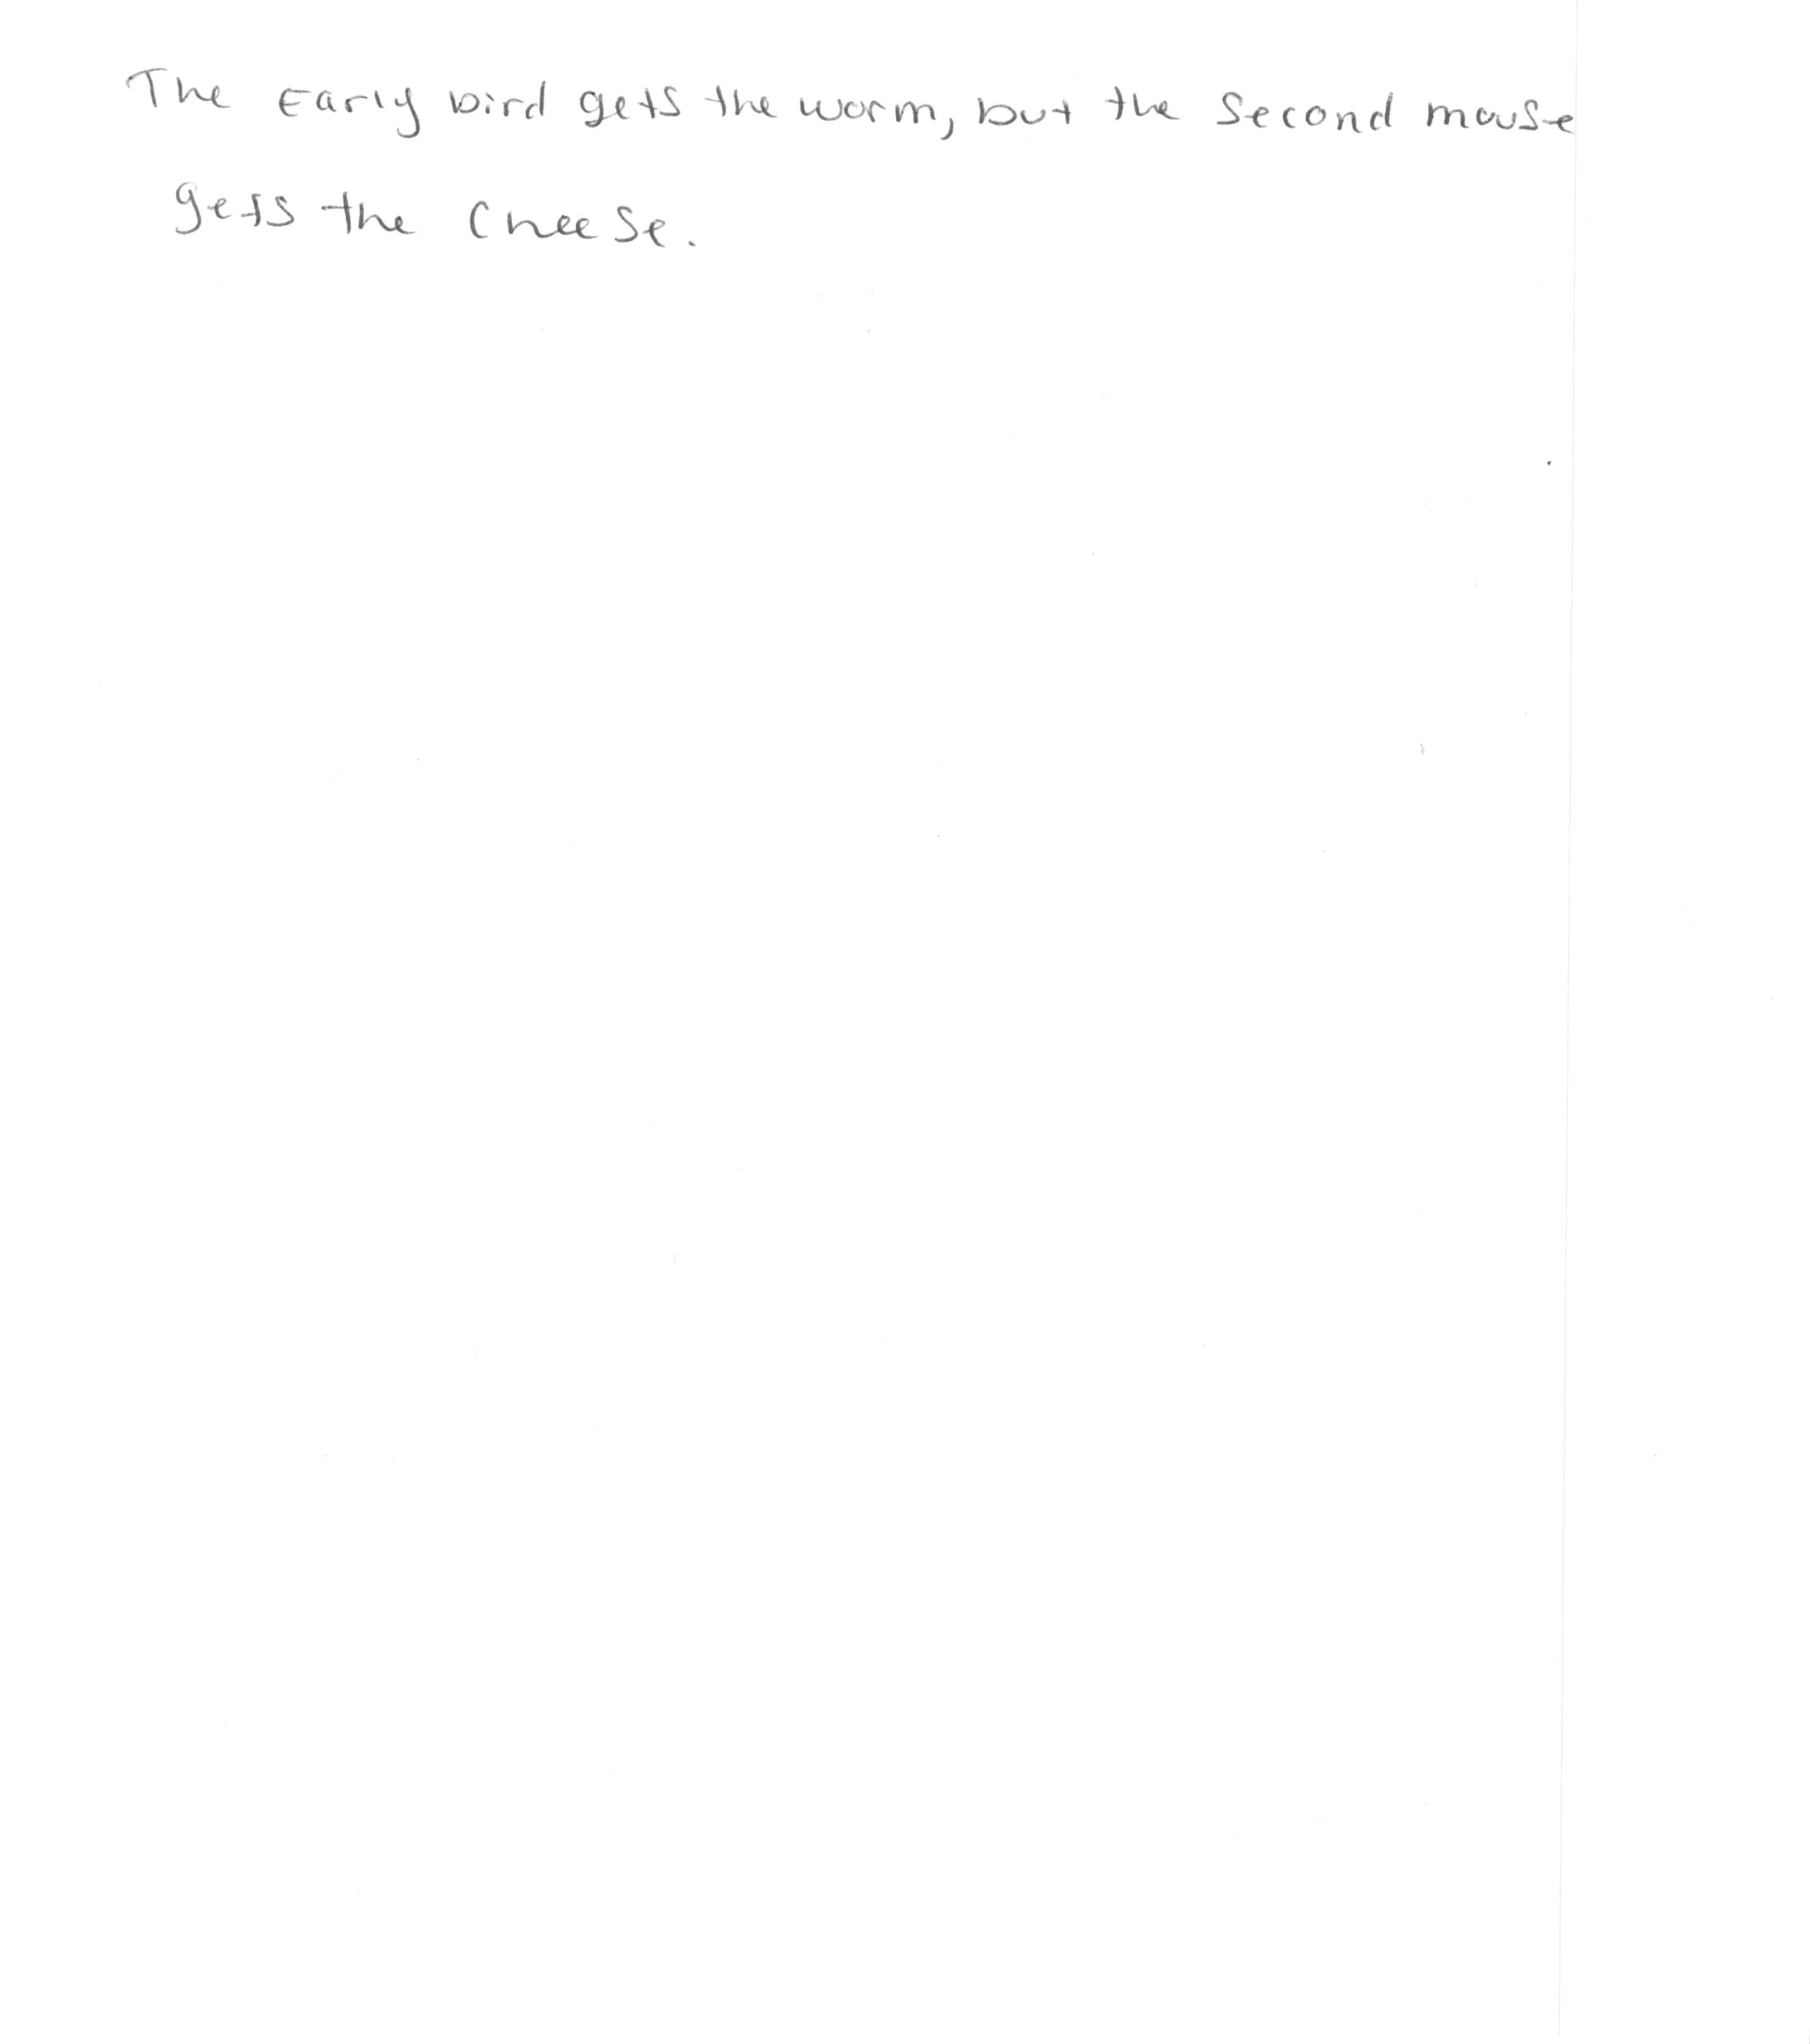 The Early bird gets the worm, but the second mouse
gets the cheese.